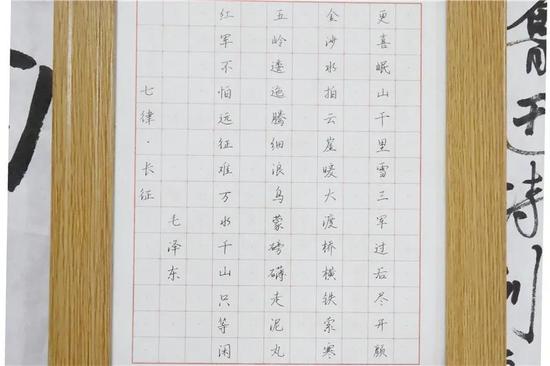 七律·长征
毛泽东
红军不怕远征难万水千山只等闲
五岭逶迤腾细浪乌蒙磅礴走泥丸
金沙水拍云崖暖大渡桥横铁索寒
更喜岷山千里雪三军过后尽开颜